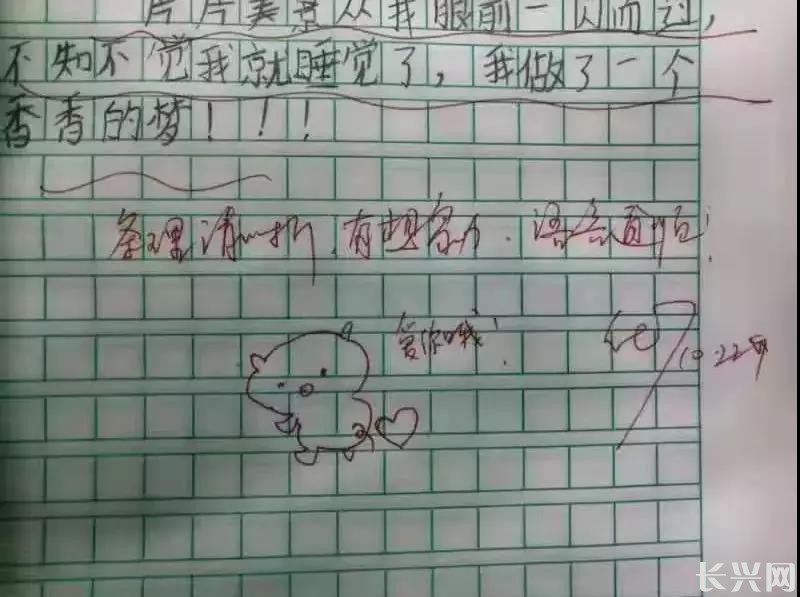 片片美景从我眼前一闪而过，
不知不觉我就睡觉了，我做了一个
香香的梦！！！
条理清晰，有想象力，语言直白！
爱你哦！
10.22
长兴网